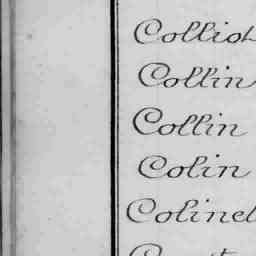 Colliot
Collin
Collin
Colin
Colinet